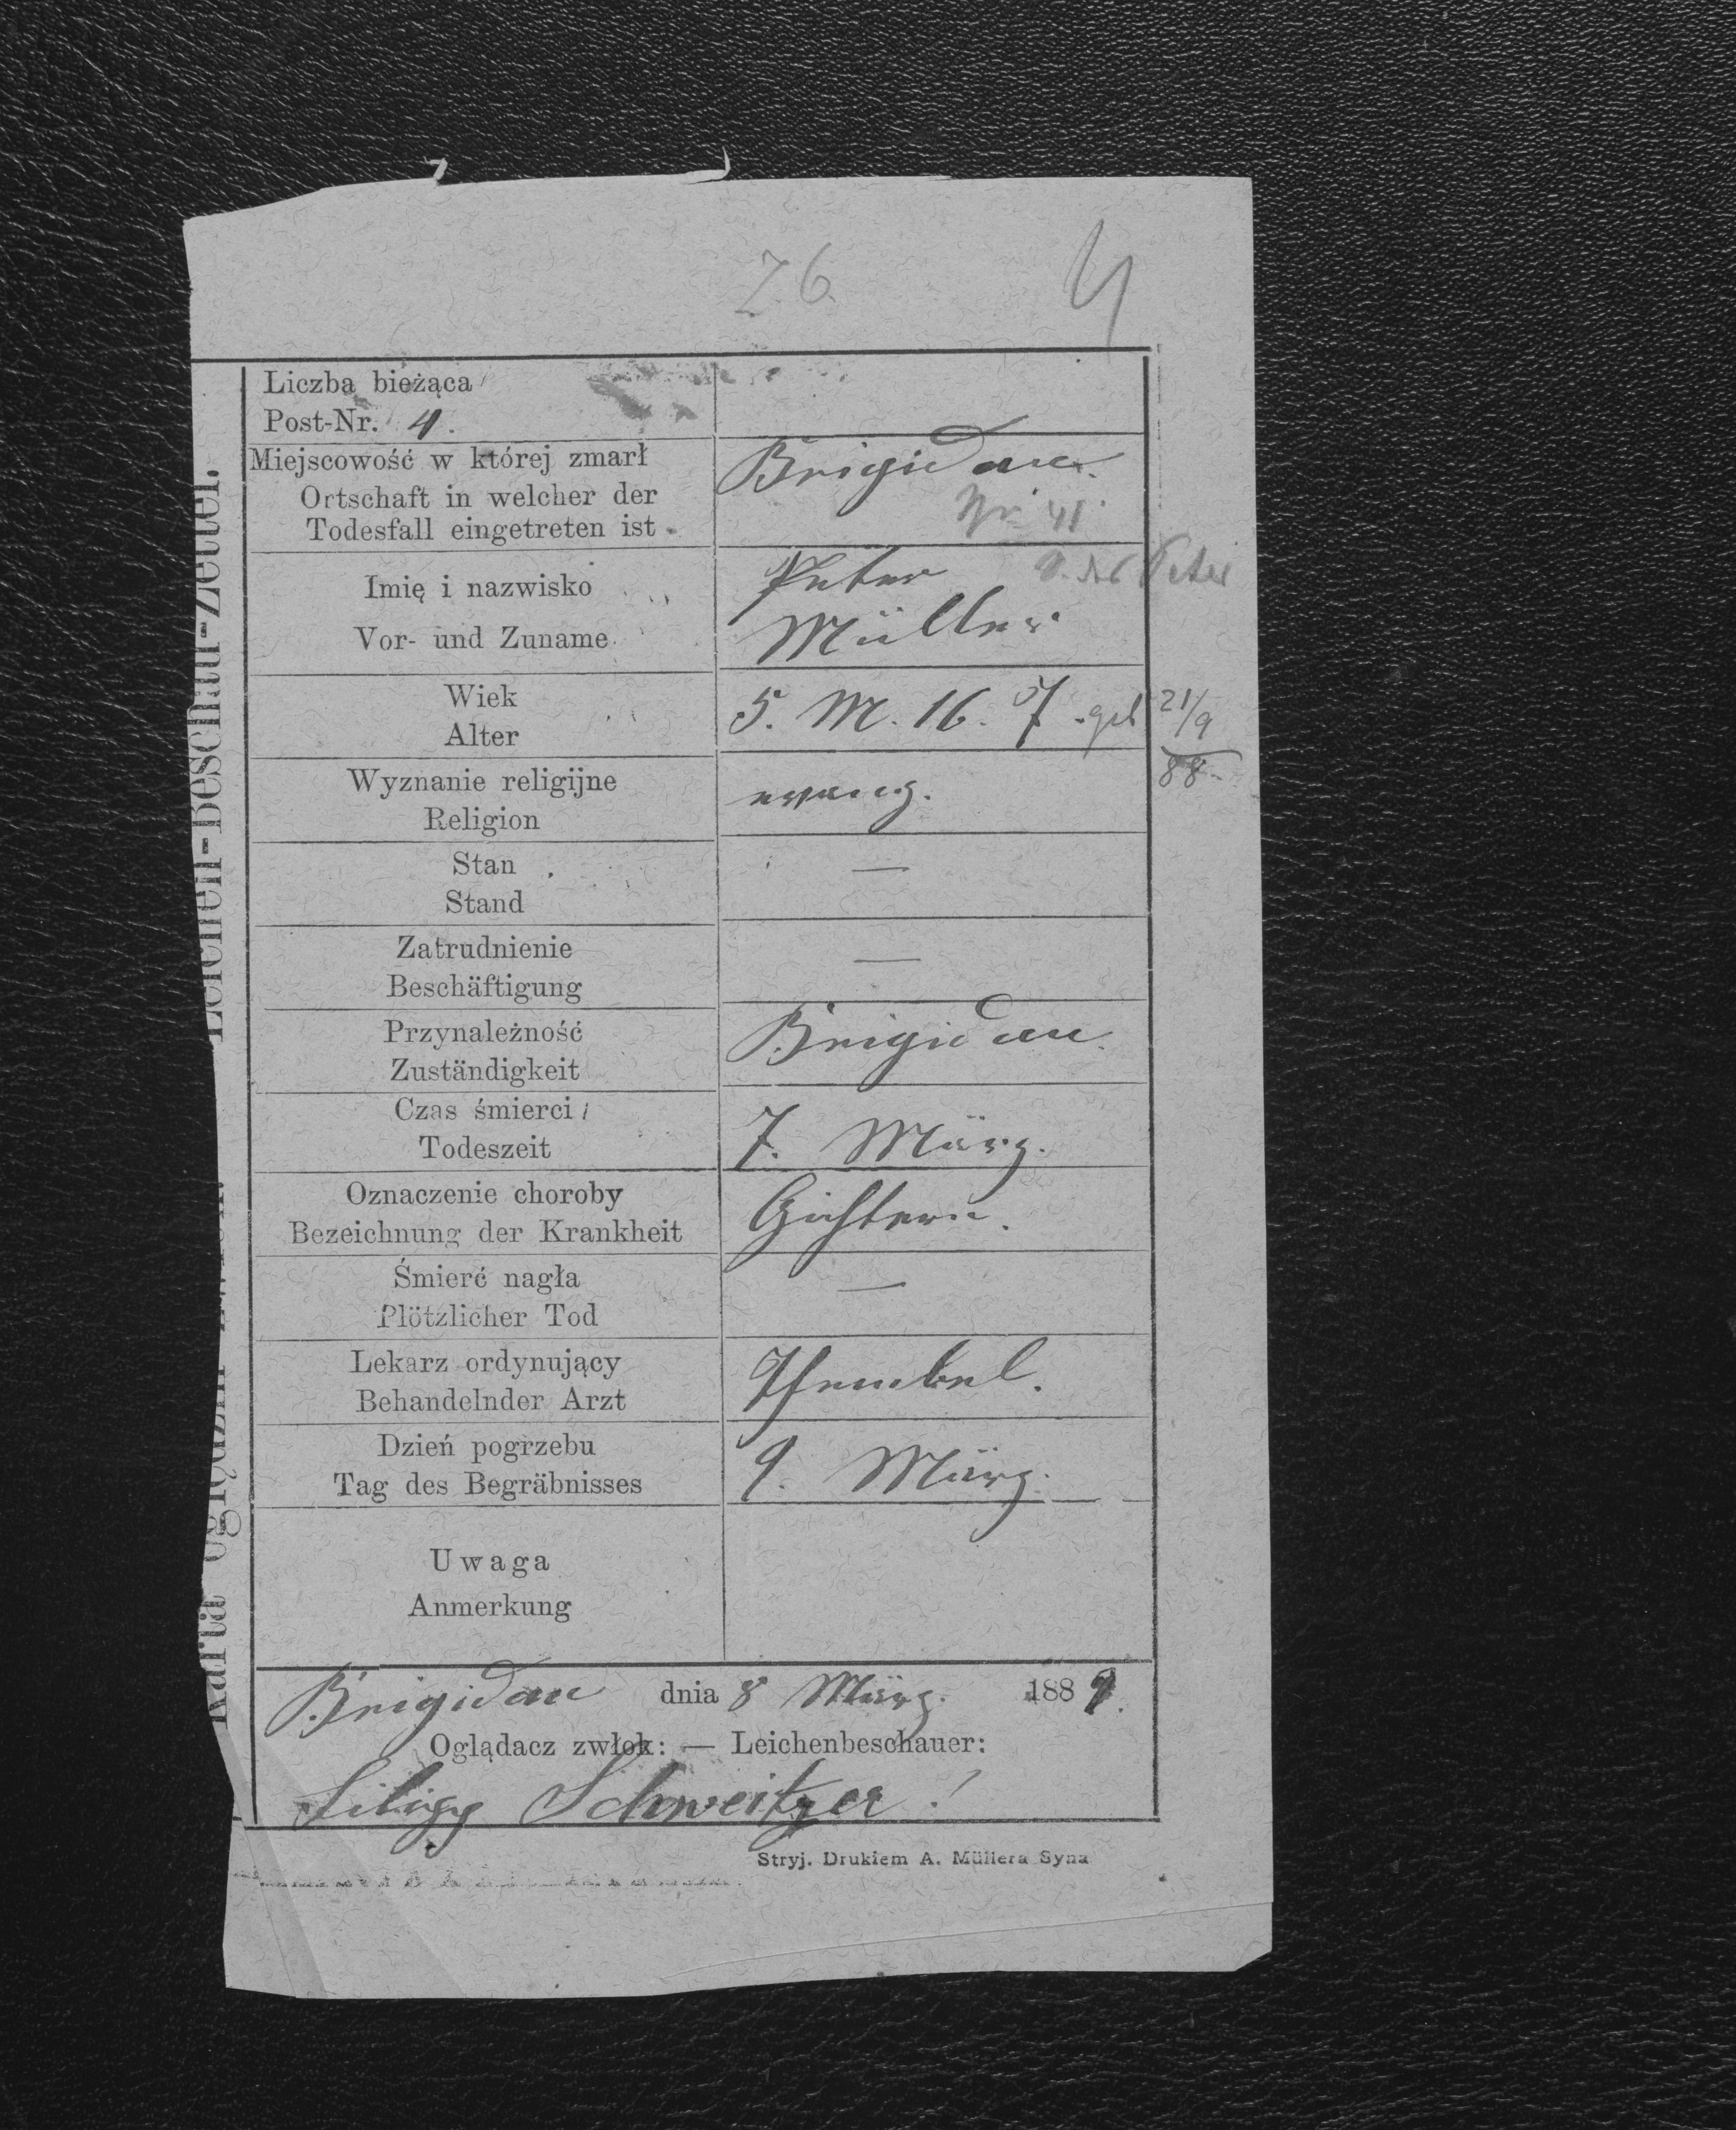 Z. 6.
4
Liczba bieżąca
Post-Nr. 4.
Miejscowość w której zmarł
Ortschaft in welcher der
Todesfall eingetreten ist
Brigidau.
Nr 41
Imię i nazwisko
Vor- und Zuname
Peter
Müller
Peter
Wiek
Alter
5. M. 16. T. geb 21/9
88
Wyznanie religijne
Religion
evang.
Stan
Stand
—
Zatrudnienie
Beschäftigung
—
Przynależność
Zuständigkeit
Brigidau.
Czas śmierci
Todeszeit
7. März.
Oznaczenie choroby
Bezeichnung der Krankheit
Gichtern.
Śmierć nagła
Plötzlicher Tod
—
Lekarz ordynujący
Behandelnder Arzt
Dzień pogrzebu
Tag des Begräbnisses
9. März.
Uwaga
Anmerkung
Brigidau dnia 8 März. 1889.
Oglądacz zwłok: — Leichenbeschauer:
Schweitzer
Stryj. Drukiem A. Müllera Syna
Leichen-Beschau-Zettel.